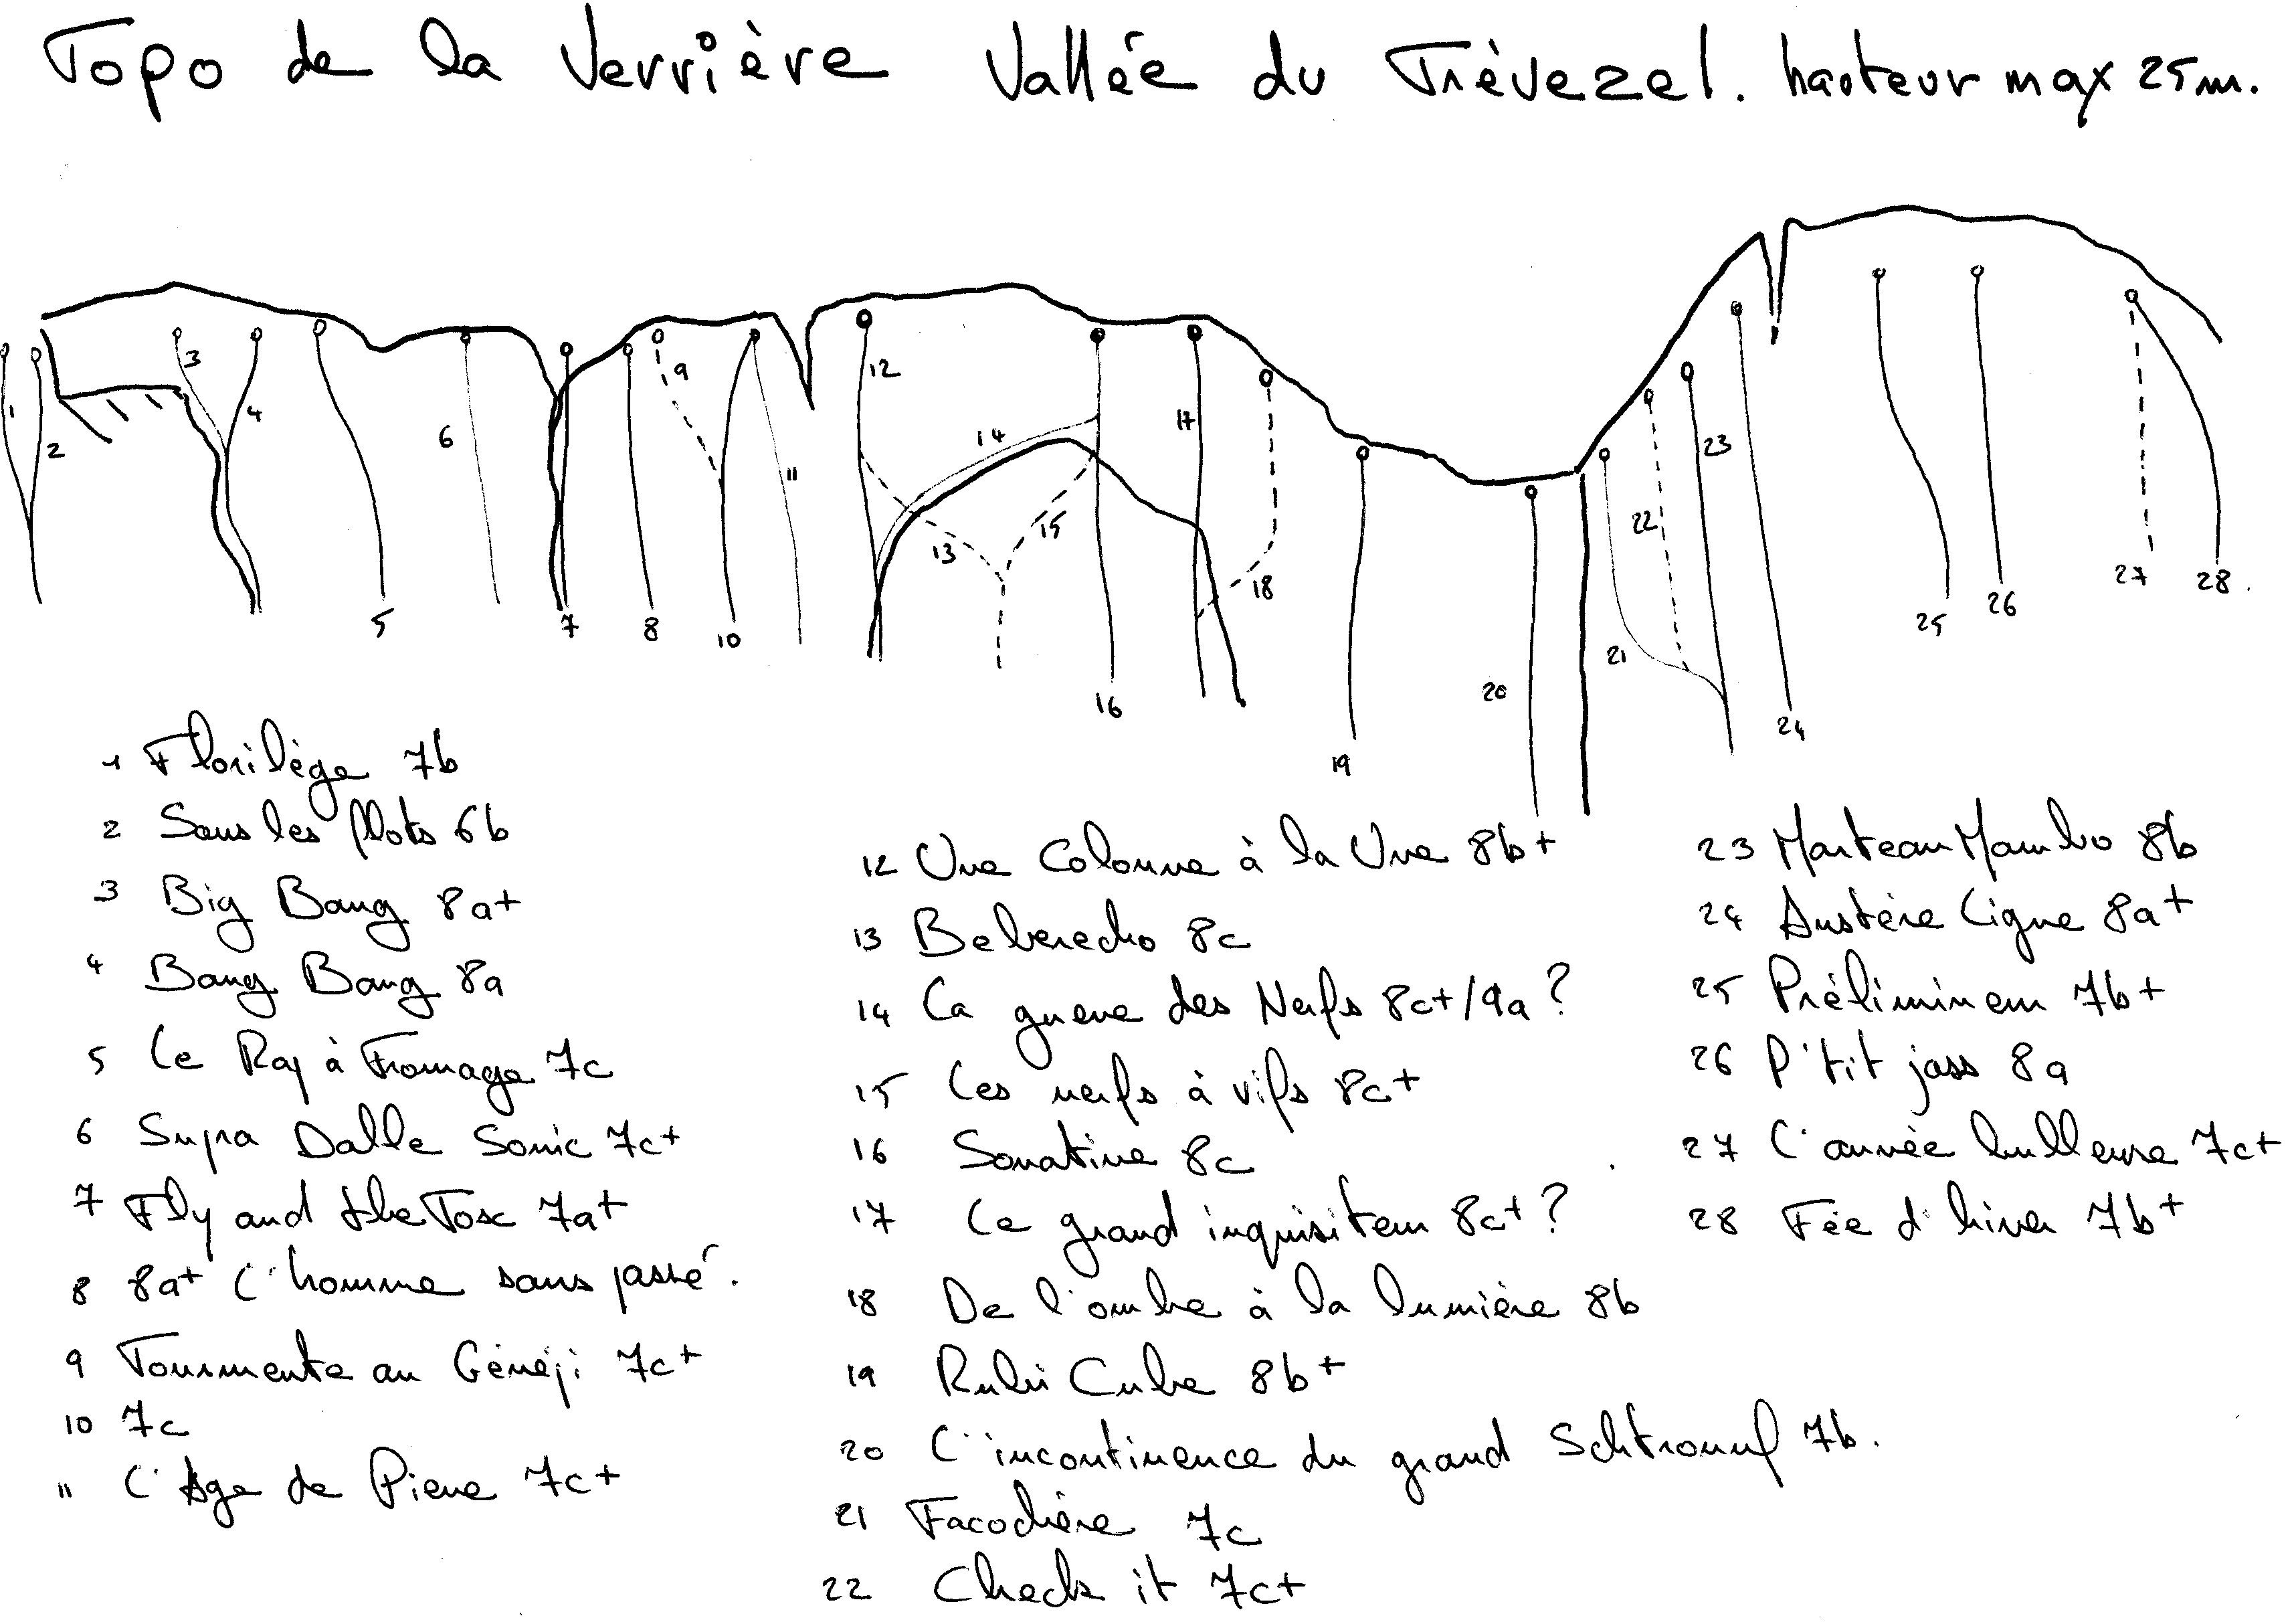 Topo de la Verrière Vallée du Trèvezel. hauteur max 25m.
1 2 3 4 5 6 7 8 9 10 11 12 13 14 15 16 17 18 19 20 21 22 23 24 25 26 27 28
1 Florilège 7b
2 Sous les flots 6b
3 Big Bang 8a+
4 Bang Bang 8a
5 Le Raj à Fromage 7c
6 Supra Dalle Sonic 7c+
7 Fly and the Tosc 7a+
8 8a+ L'homme sans passé.
9 Tourmente au Génépi 7c+
10 7c
11 L'Age de Pierre 7c+
12 Une Colonne à la Une 8b+
13 8c
14 La guerre des Nerfs 8c+/9a?
15 Les nerfs à vifs 8c+
16 Sonatine 8c
17 Le grand inquisiteur 8c+?
18 De l'ombre à la lumière 8b
19 Rubi Cube 8b+
20 L'incontinence du grand Schtroumf 7b.
21 Facochère 7c
22 Check it 7c+
23 Marteau Mambo 8b
24 Austère Ligne 8a+
25 Prélimineur 7b+
26 P'tit jass 8a
27 L'année bulleuse 7c+
28 Fée d'hiver 7b+